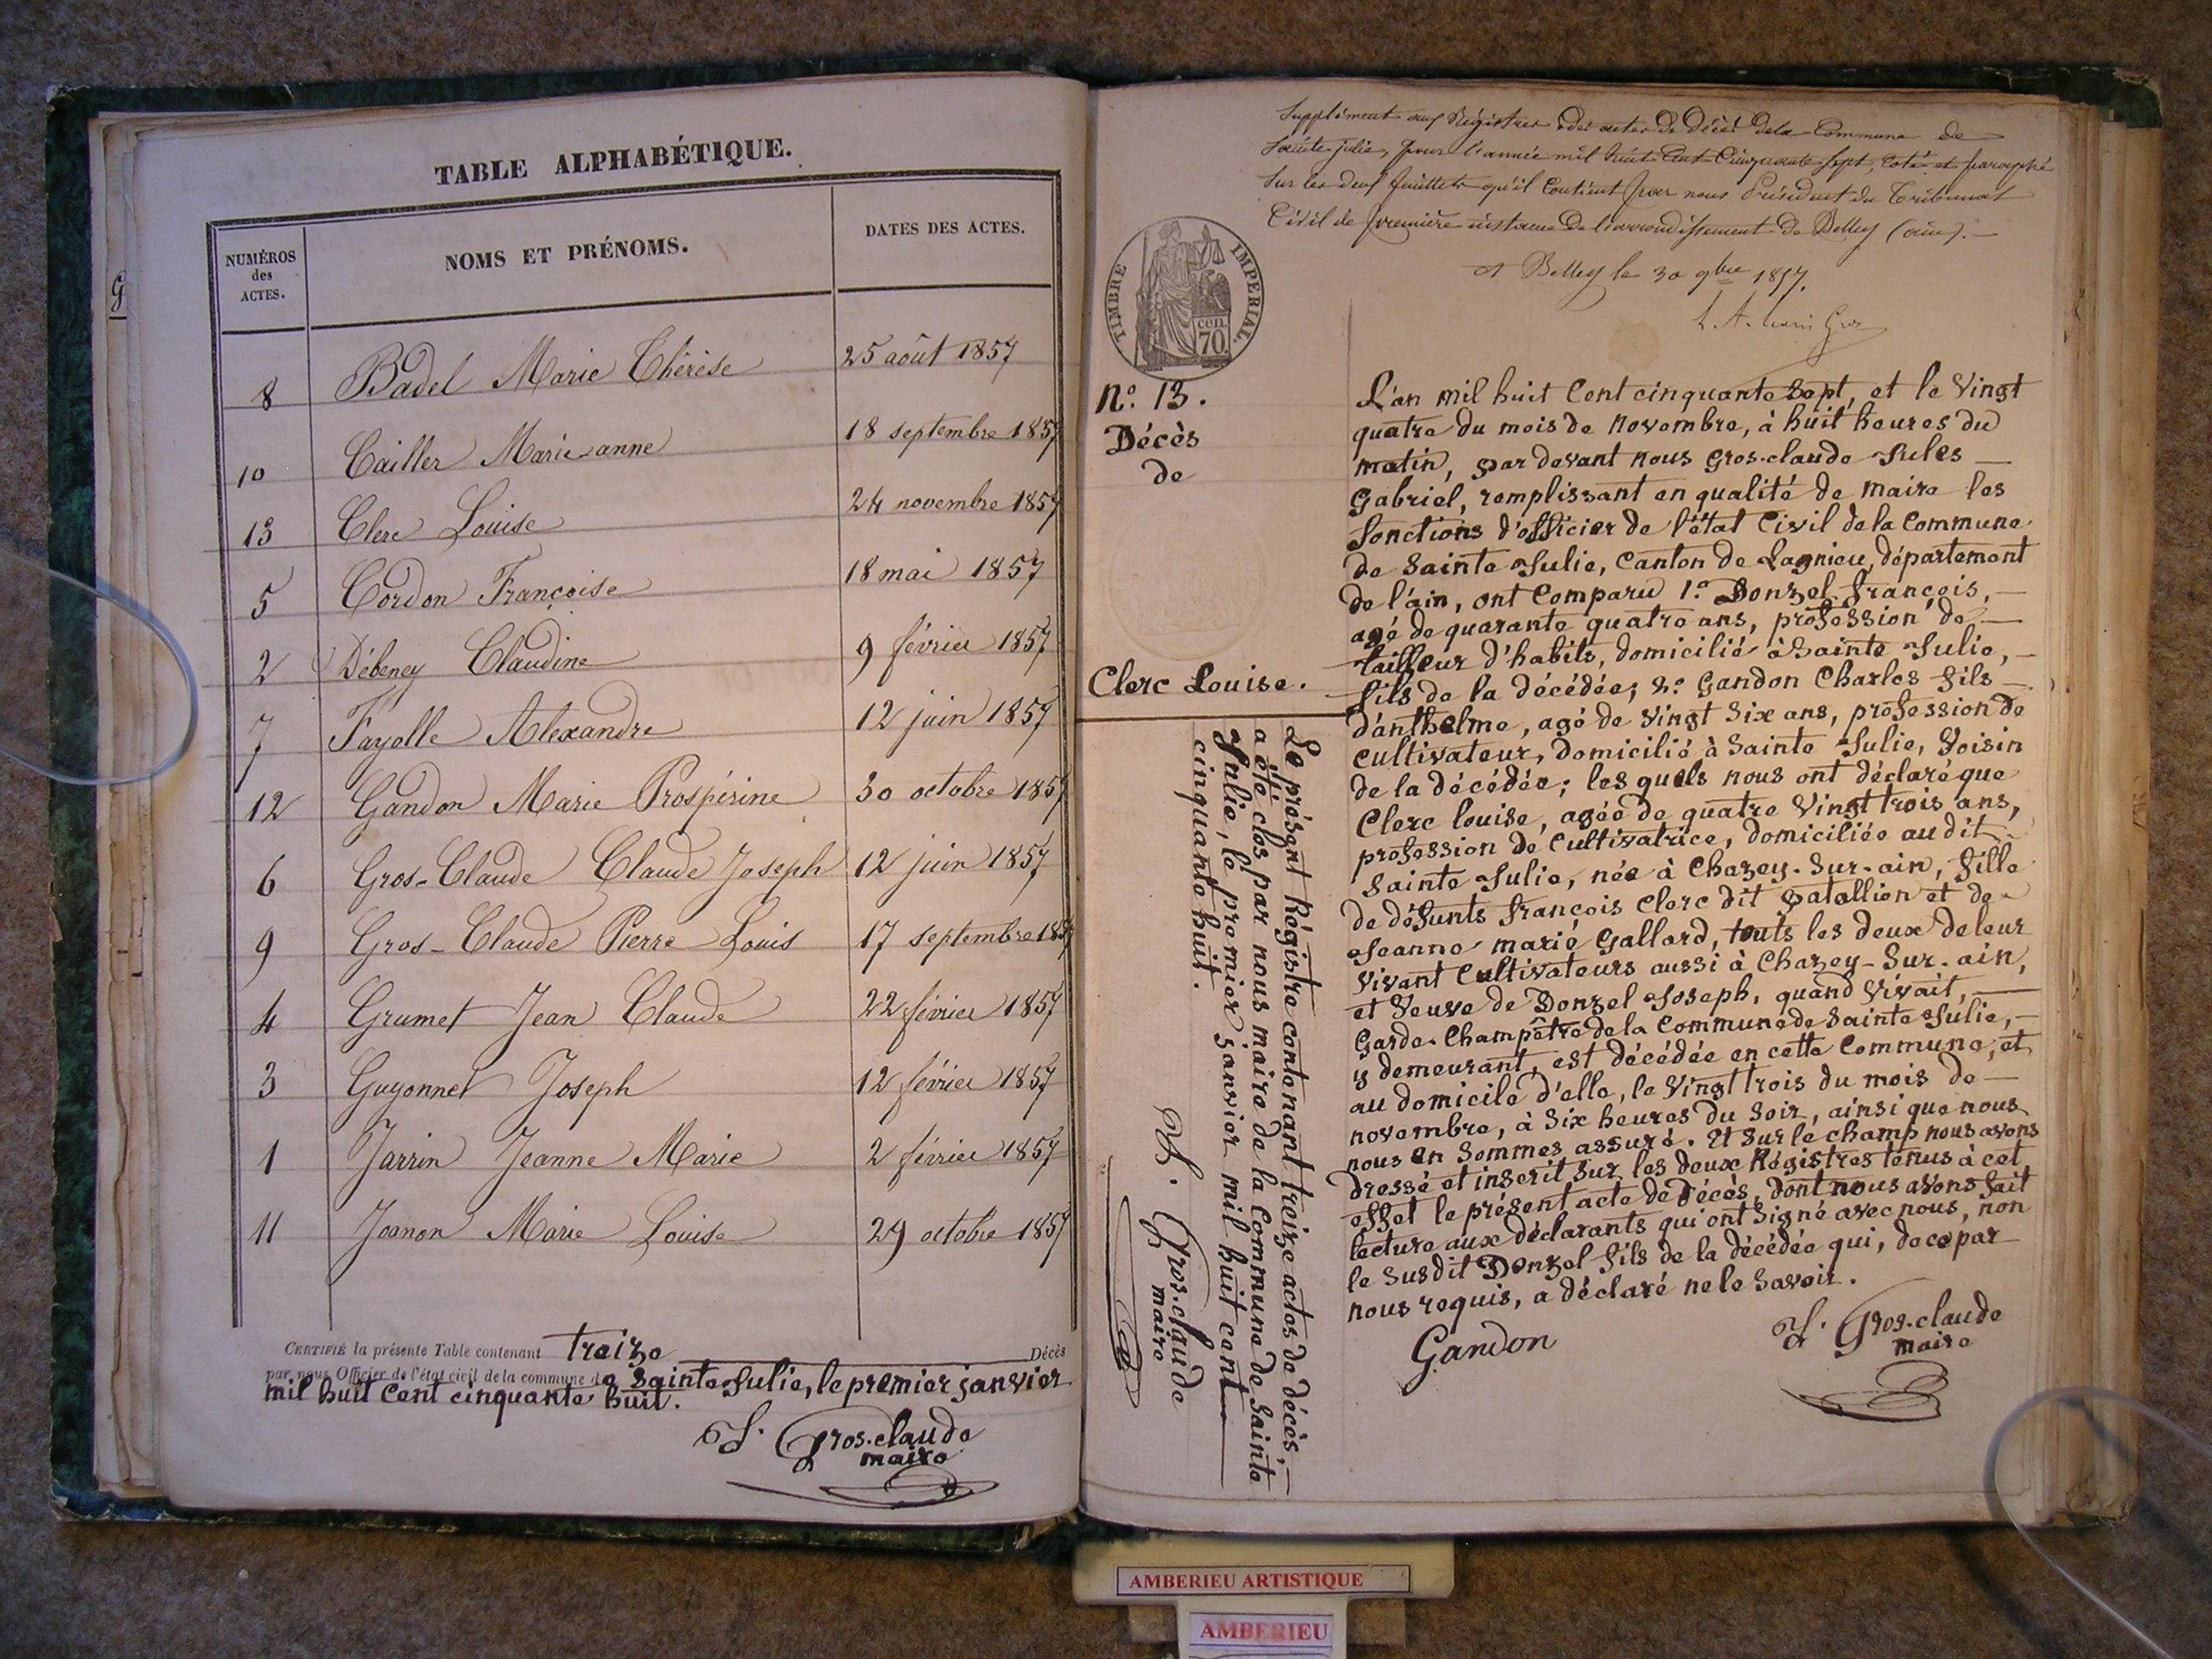 TABLE ALPHABÉTIQUE.
NUMÉROS des ACTES.
NOMS ET PRÉNOMS.
DATES DES ACTES.
8 Badel Marie Thérèse 25 août 1857
10 Cailler Marie-anne 18 septembre 1857
13 Clerc Louise 24 novembre 1857
5 Cordon Françoise 18 mai 1857
2 Débeney Claudine 9 février 1857
7 Fayolle Alexandre 12 juin 1857
12 Gandon Marie Prospérine 30 octobre 1857
6 Gros-Claude Claude Joseph 12 juin 1857
9 Gros-Claude Pierre Louis 17 septembre 1857
4 Grumet Jean Claude 22 février 1857
3 Guyonnet Joseph 12 février 1857
1 Jarrin Jeanne Marie 2 février 1857
11 Joanon Marie Louise 29 octobre 1857
CERTIFIÉ la présente Table contenant treize Décès
par nous Officier de l'état civil de la commune de Sainte Julie, le premier janvier
mil huit cent cinquante huit.
J. Gros-claude
maire
Supplément aux Régistres des actes de décès de la Commune de
Sainte julie, pour l'année mil huit cent cinquante sept, coté et paraphé
sur les deux feuillets qu'il contient par nous Président du Tribunal
Civil de première instance de l'arrondissement de Belley (ain).
A Belley le 30 9bre 1857.
TIMBRE IMPERIAL.
cen. 70
N.º 13.
Décès
de
Clerc Louise.
L'an mil huit Cent cinquante Sept, et le Vingt
quatre du mois de Novembre, à huit heures du
matin, par devant nous Gros-claude Jules
Gabriel, remplissant en qualité de maire les
fonctions d'officier de l'état Civil de la Commune
de Sainte Julie, Canton de Lagnieu, département
de l'ain, ont Comparu 1.º Donzel françois,
agé de quarante quatre ans, profession de
tailleur d'habits, domicilié à Sainte Julie,
fils de la décédée; 2.º Gandon Charles fils
d'anthelme, agé de vingt Six ans, profession de
cultivateur, domicilié à Sainte Julie, Voisin
de la décédée; les quels nous ont déclaré que
Clerc louise, agée de quatre Vingt trois ans,
profession de Cultivatrice, domiciliée au dit
Sainte Julie, née à Chazey-Sur-ain, fille
de défunts françois Clerc dit Patallion et de
Jeanne marie Gallard, touts les deux de leur
Vivant Cultivateurs aussi à Chazey-Sur-ain,
et Veuve de Donzel Joseph, quand Vivait,
Garde-Champêtre de la Commune de Sainte Julie,
y demeurant, est décédée en cette Commune, et
au domicile d'elle, le Vingt trois du mois de
novembre, à Six heures du Soir, ainsi que nous
nous en Sommes assuré. Et Sur le champ nous avons
dressé et inscrit Sur les deux Régistres tenus à cet
effet le présent acte de décès, dont nous avons fait
lecture aux déclarants qui ont signé avec nous, non
le Susdit Donzel fils de la décédée qui, de ce par
nous requis, a déclaré ne le Savoir.
Gandon
J. Gros-claude
maire
Le présent Régistre contenant treize actes de décès,
a été clos par nous maire de la Commune de Sainte
Julie, le premier janvier mil huit cent
cinquante huit.
J. Gros-claude
maire
AMBERIEU ARTISTIQUE
AMBERIEU